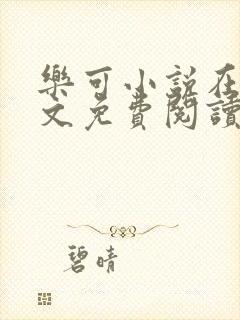 樂可小說在
文免費閱讀
碧晴